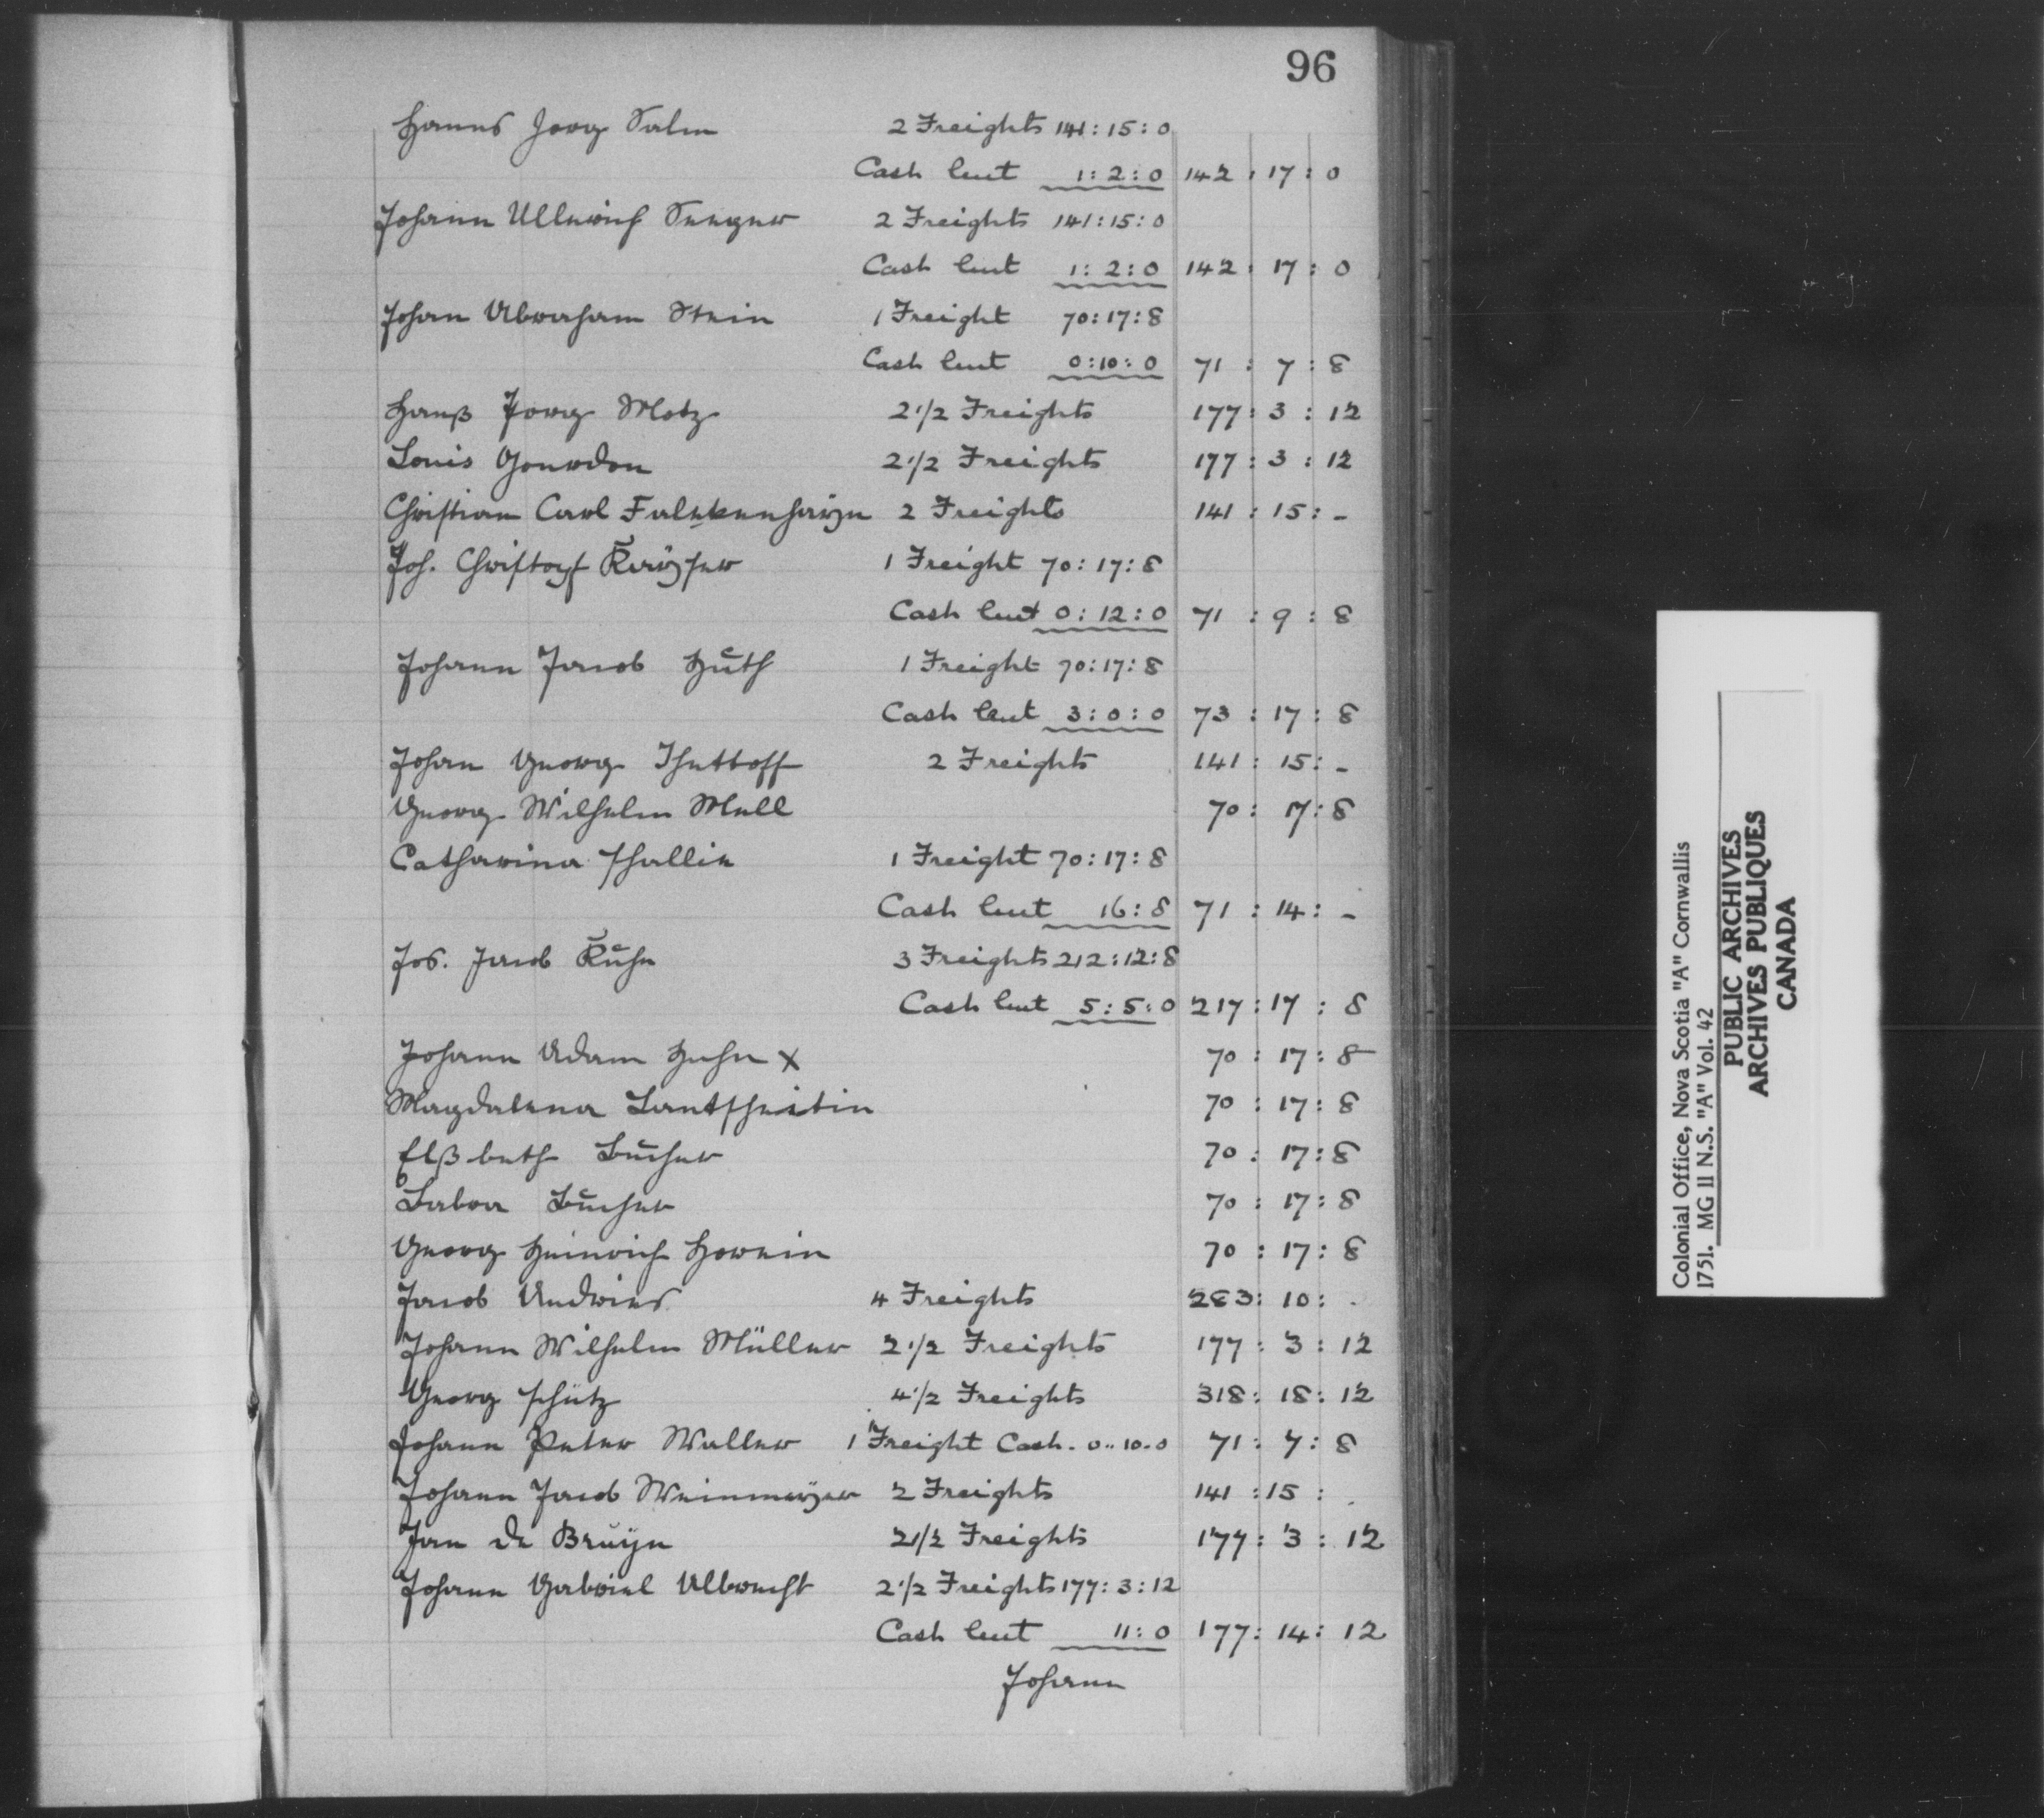 96
Hanns Jorg Salm 2 Freights 141:15:0
Cash lent 1:2:0 142:17:0
Johann Ullerich Seeger 2 Freights 141:15:0
Cash lent 1:2:0 142:17:0
Johan Abraham Stein 1 Freight 70:17:8
Cash lent 0:10:0 71:7:8
Hanß Jorg Motz 2 1/2 Freights 177:3:12
Louis Gourdon 2 1/2 Freights 177:3:12
Christian Carl Falckenhaÿn 2 Freights 141:15:-
Joh. Christoph Kaÿser 1 Freight 70:17:8
Cash lent 0:12:0 71:9:8
Johann Jacob Huth 1 Freight 70:17:8
Cash lent 3:0:0 73:17:8
Johan Georg Thettoff 2 Freights 141:15:-
Georg Wilhelm Mell 70:17:8
Catharina Schallin 1 Freight 70:17:8
Cash lent 16:8 71:14:-
Jos. Jacob Kuhn 3 Freights 212:12:8
Cash lent 5:5:0 217:17:8
Johann Adam Huhn x 70:17:8
Magdalena Lantscheitin 70:17:8
Elßbeth Bucher 70:17:8
Barbra Bucher 70:17:8
Georg Heinrich Horein 70:17:8
Jacob Andries 4 Freights 283:10:.
Johann Wilhelm Müller 2 1/2 Freights 177:3:12
Georg Schütz 4 1/2 Freights 318:18:12
Johann Peter Waller 1 Freight Cash. 0..10.0 71:7:8
Johann Jacob Weinmeÿer 2 Freights 141:15:.
Jan de Bruijn 2 1/2 Freights 177:3:12
Johann Gabriel Albrecht 2 1/2 Freights 177:3:12
Cash lent 11:0 177:14:12
Johann
Colonial Office, Nova Scotia "A" Cornwallis
1751. MG 11 N.S. "A" Vol. 42
PUBLIC ARCHIVES
ARCHIVES PUBLIQUES
CANADA